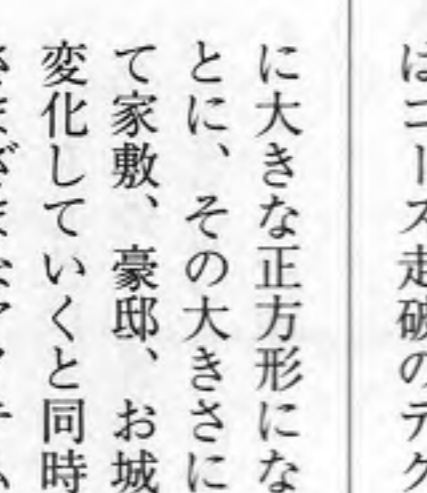 はコース走破のテク
に大きな正方形にな
とに、その大きさに
て家敷、豪邸、お城
変化していくと同時